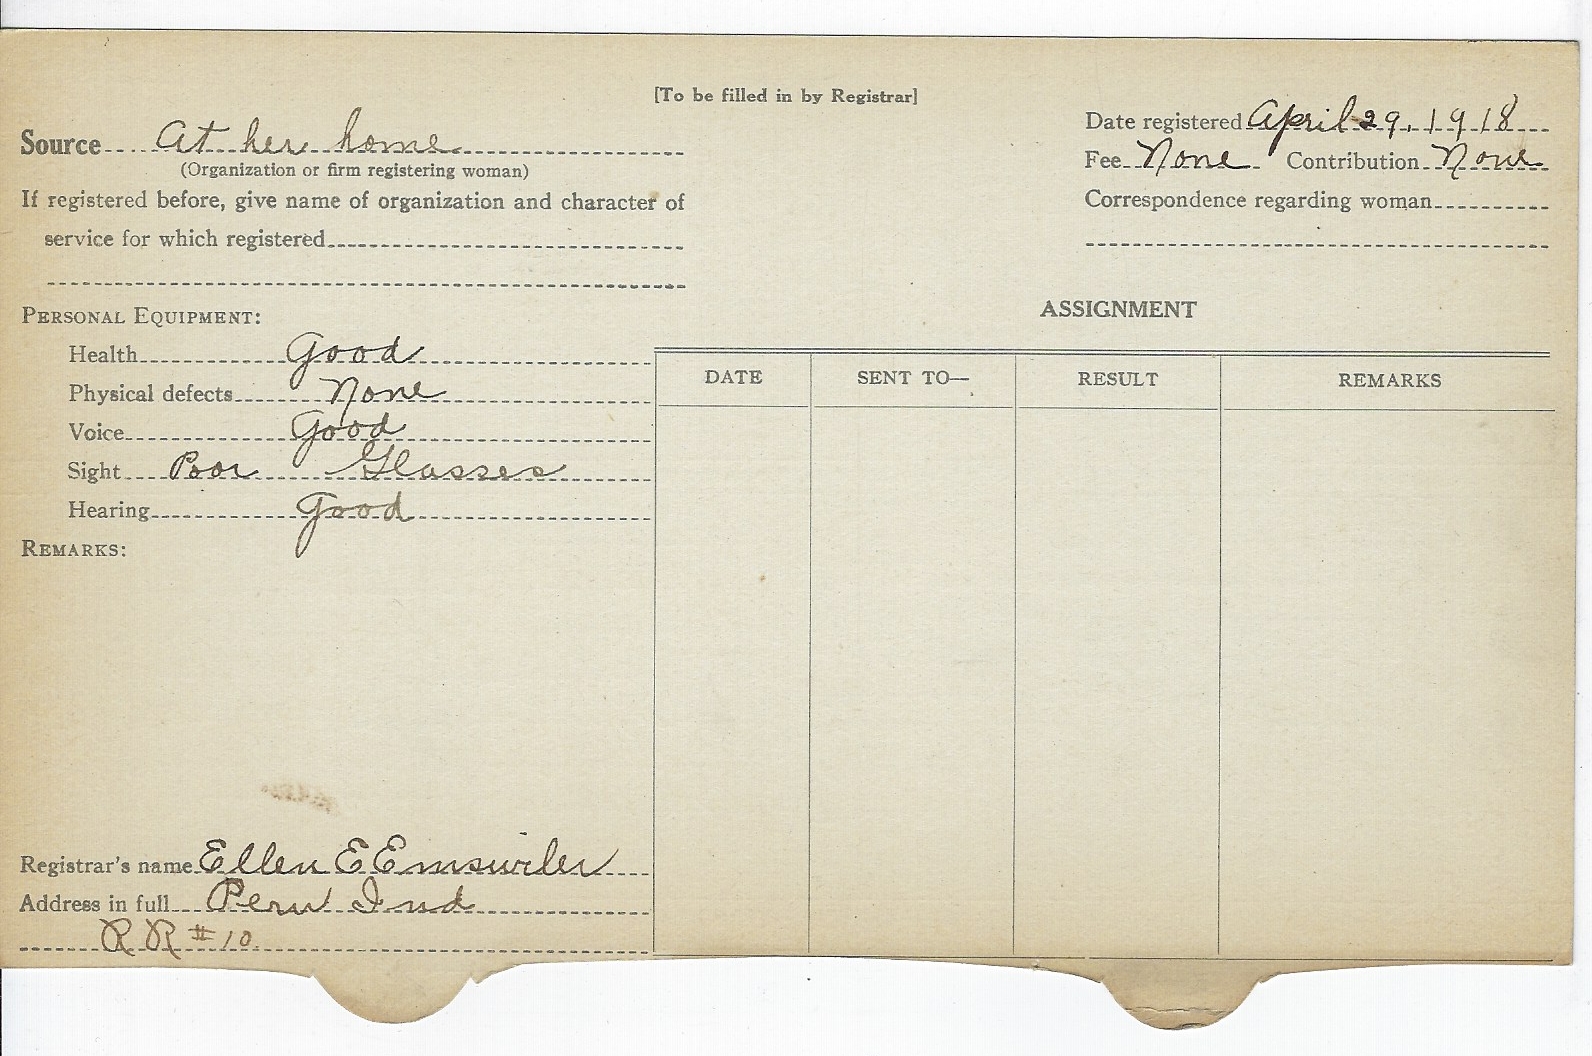 [To be filled in by Registrar]
Source At her home
(Organization or firm registering woman)
If registered before, give name of organization and character of
service for which registered
Date registered April 29, 1918
Fee None Contribution None
Correspondence regarding woman
PERSONAL EQUIPMENT:
Health Good
Physical defects None
Voice Good
Sight Poor Glasses
Hearing Good
REMARKS:
ASSIGNMENT
DATE SENT TO— RESULT REMARKS
Registrar's name Ellen E Emswiler
Address in full Peru Ind
R R #10.